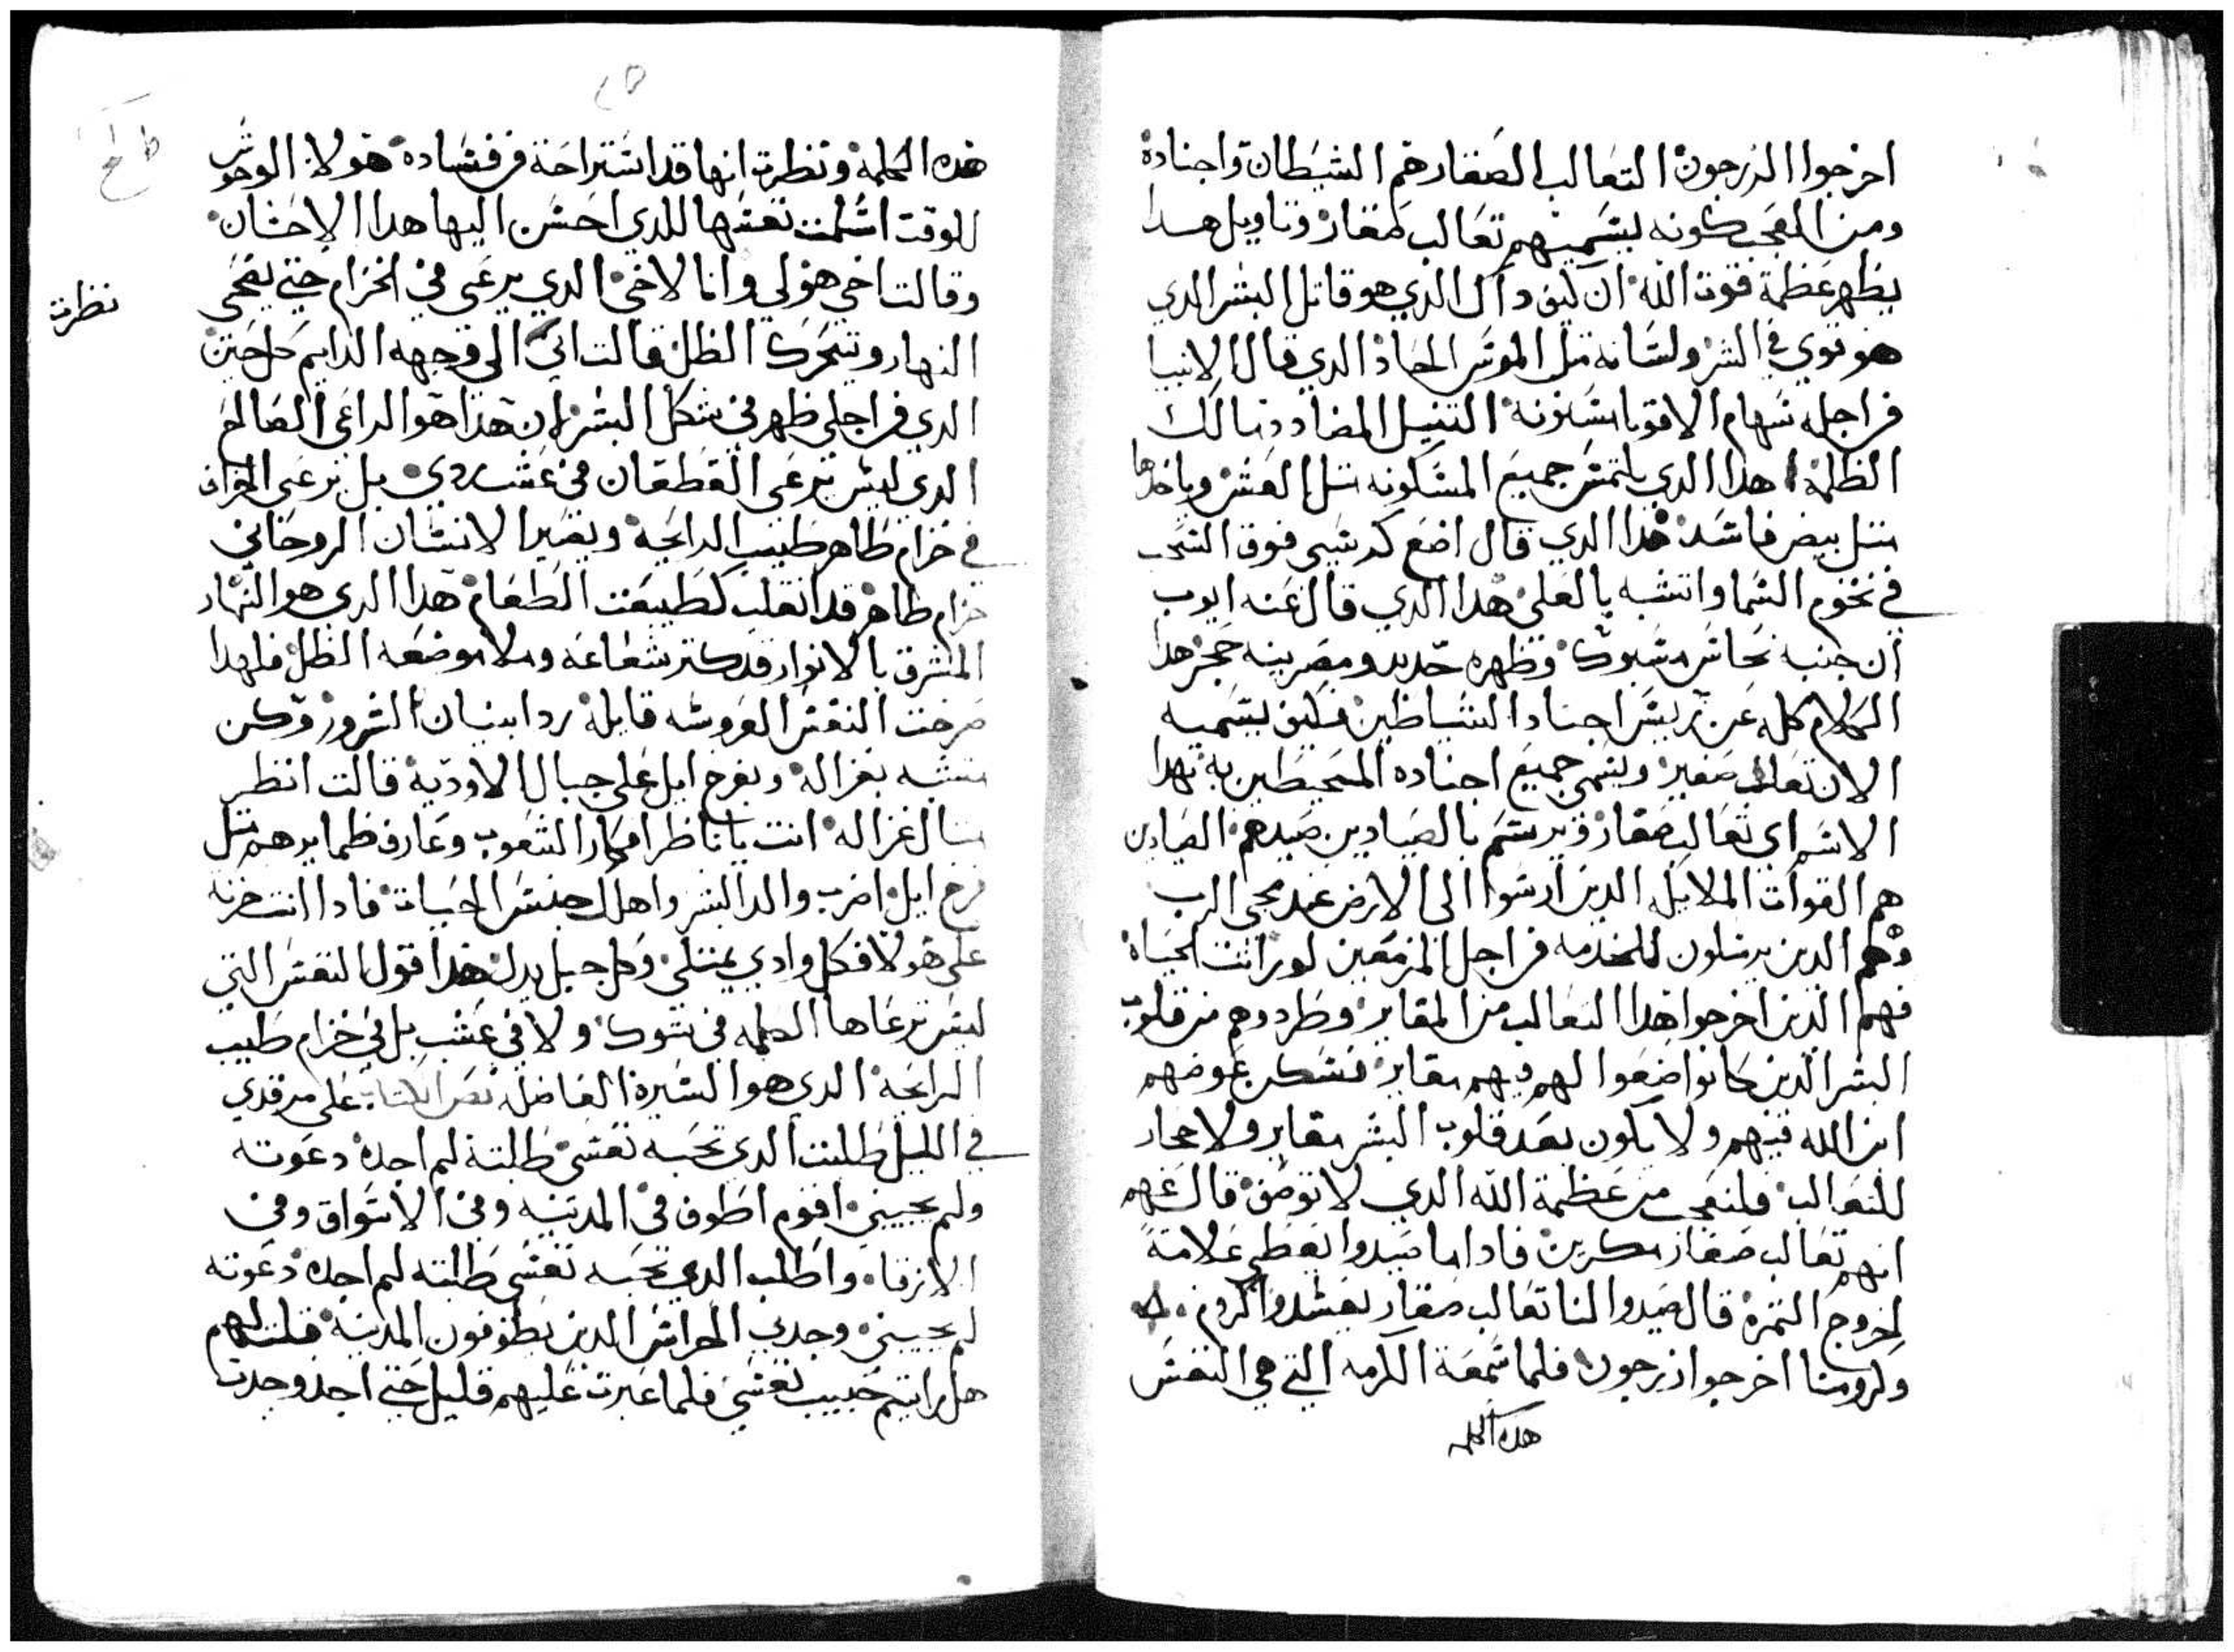 اخرجوا الزرجون التعالب الصغار هم الشيطان واجناده
ومن العجب كونه يسميهم تعالب صغار وتاويل هدا
يظهر عظمة قوت الله ان كيف داك الذي هو قاتل البشر الدي
هو قوي في الشر ولسانه متل الموس الحاد الدي قال الانبيا
من اجله سهام الاقويا مسنونه التنيل المضادد تالك
الظلمة هدا الدي يلتمس جميع المسكونه متل العش وياخدها
متل بيض فاسد هدا الدي قال اضع كرسي فوق السحب
في تخوم السما واتشبه بالعلي هدا الدي قال عنه ايوب
ان جنبه نحاس مسبوك وظهره حديد ومصرينه حجر هدا
الكلام كله عن ريس اجناد الشياطين فكيف يسميه
الان تعالب صغير ويسمي جميع اجناده المحيطين به بهدا
الاسم اي تعالب صغار ويرسم بالصيادين صيدهم الصيادين
هم القوات الملايكه الدين ارسوا الى الارض عند مجي الرب
وهم الدين يرسلون للخدمه من اجل المزمعين لوراتت الحياة
فهم الدين اخرجوا هدا التعالب من المقابر وطردوهم من قلوب
البشر الدين كانوا ضعوا لهم فيهم مقابر فسكن عوضهم
ابن الله فيهم ولا يكون بعد قلوب البشر مقابر ولا احجار
للتعالب فلنعجب من عظمة الله الدي لا توصف قال عنهم
انهم تعالب صغار مكرين فادا ما صيدوا يعطي علامة
لخروج التمرة قال صيدوا لنا تعالب صغار يفسدوا الكروم
وكرومنا اخرجوا زرجون فلما سمعة الكرمه التي هي النفس
هده الكلمه
هده الكلمة ونظرت انها قد استراحة من فساده هولاء الوحوش
للوقت اسلمت نفسها للدي احسن اليها هدا الاحسان
وقالت اخي هو لي وانا لاخي الدي يرعى في الخزام حتي يضحى
نظرت
النهار ويتحرك الظل قالت اني الى وجهه الدايم كل حين
الدي من اجلي ظهر في شكل البشر لان هدا هو الراعي الصالح
الدي ليس يرعى القطعان في عشب ردي بل يرعى الخراف
في خزام طاهر طيب الرايحة ويصير الانسان الروحاني
خزام طاهر قد انقلب لطبيعت الطعام هدا الدي هو النهار
المشرق بالانوار قد كتر شعاعه وملا موضعه الظل فلهدا
صرخت النفس العروسه قايلة رد ابنيان السرور وكن
متشبه بغزاله وبفرح ايل على جبال الاودية قالت انظر
متال غزاله انت يا ناظر افكار الشعوب وعارف ضمايرهم متل
فرح ايل اضرب والد الشر واهلك جنس الحيات فادا انت حزنه
على هولا فكل وادي يمتلي وكل جبل يدل هدا قول النفس التي
ليس يرعاها الكلمه في شوك ولا في عشب بل في خزام طيب
الرايحة الدي هو السيرة الفاضله نص الكتاب على مرقدي
في الليل طلبت الدي تحبه نفسي طلبته لم اجده دعوته
ولم يجيبني اقوم اطوف في المدينه وفي الاسواق وفي
الازقاه واطلب الدي تحبه نفسي طلبته لم اجده دعوته
لم يجيبني وجدني الحراس الدين يطوفون المدينة قلت لهم
هل رايتم حبيب نفسي فلما عبرت عليهم قليل حتى اجد وجدت